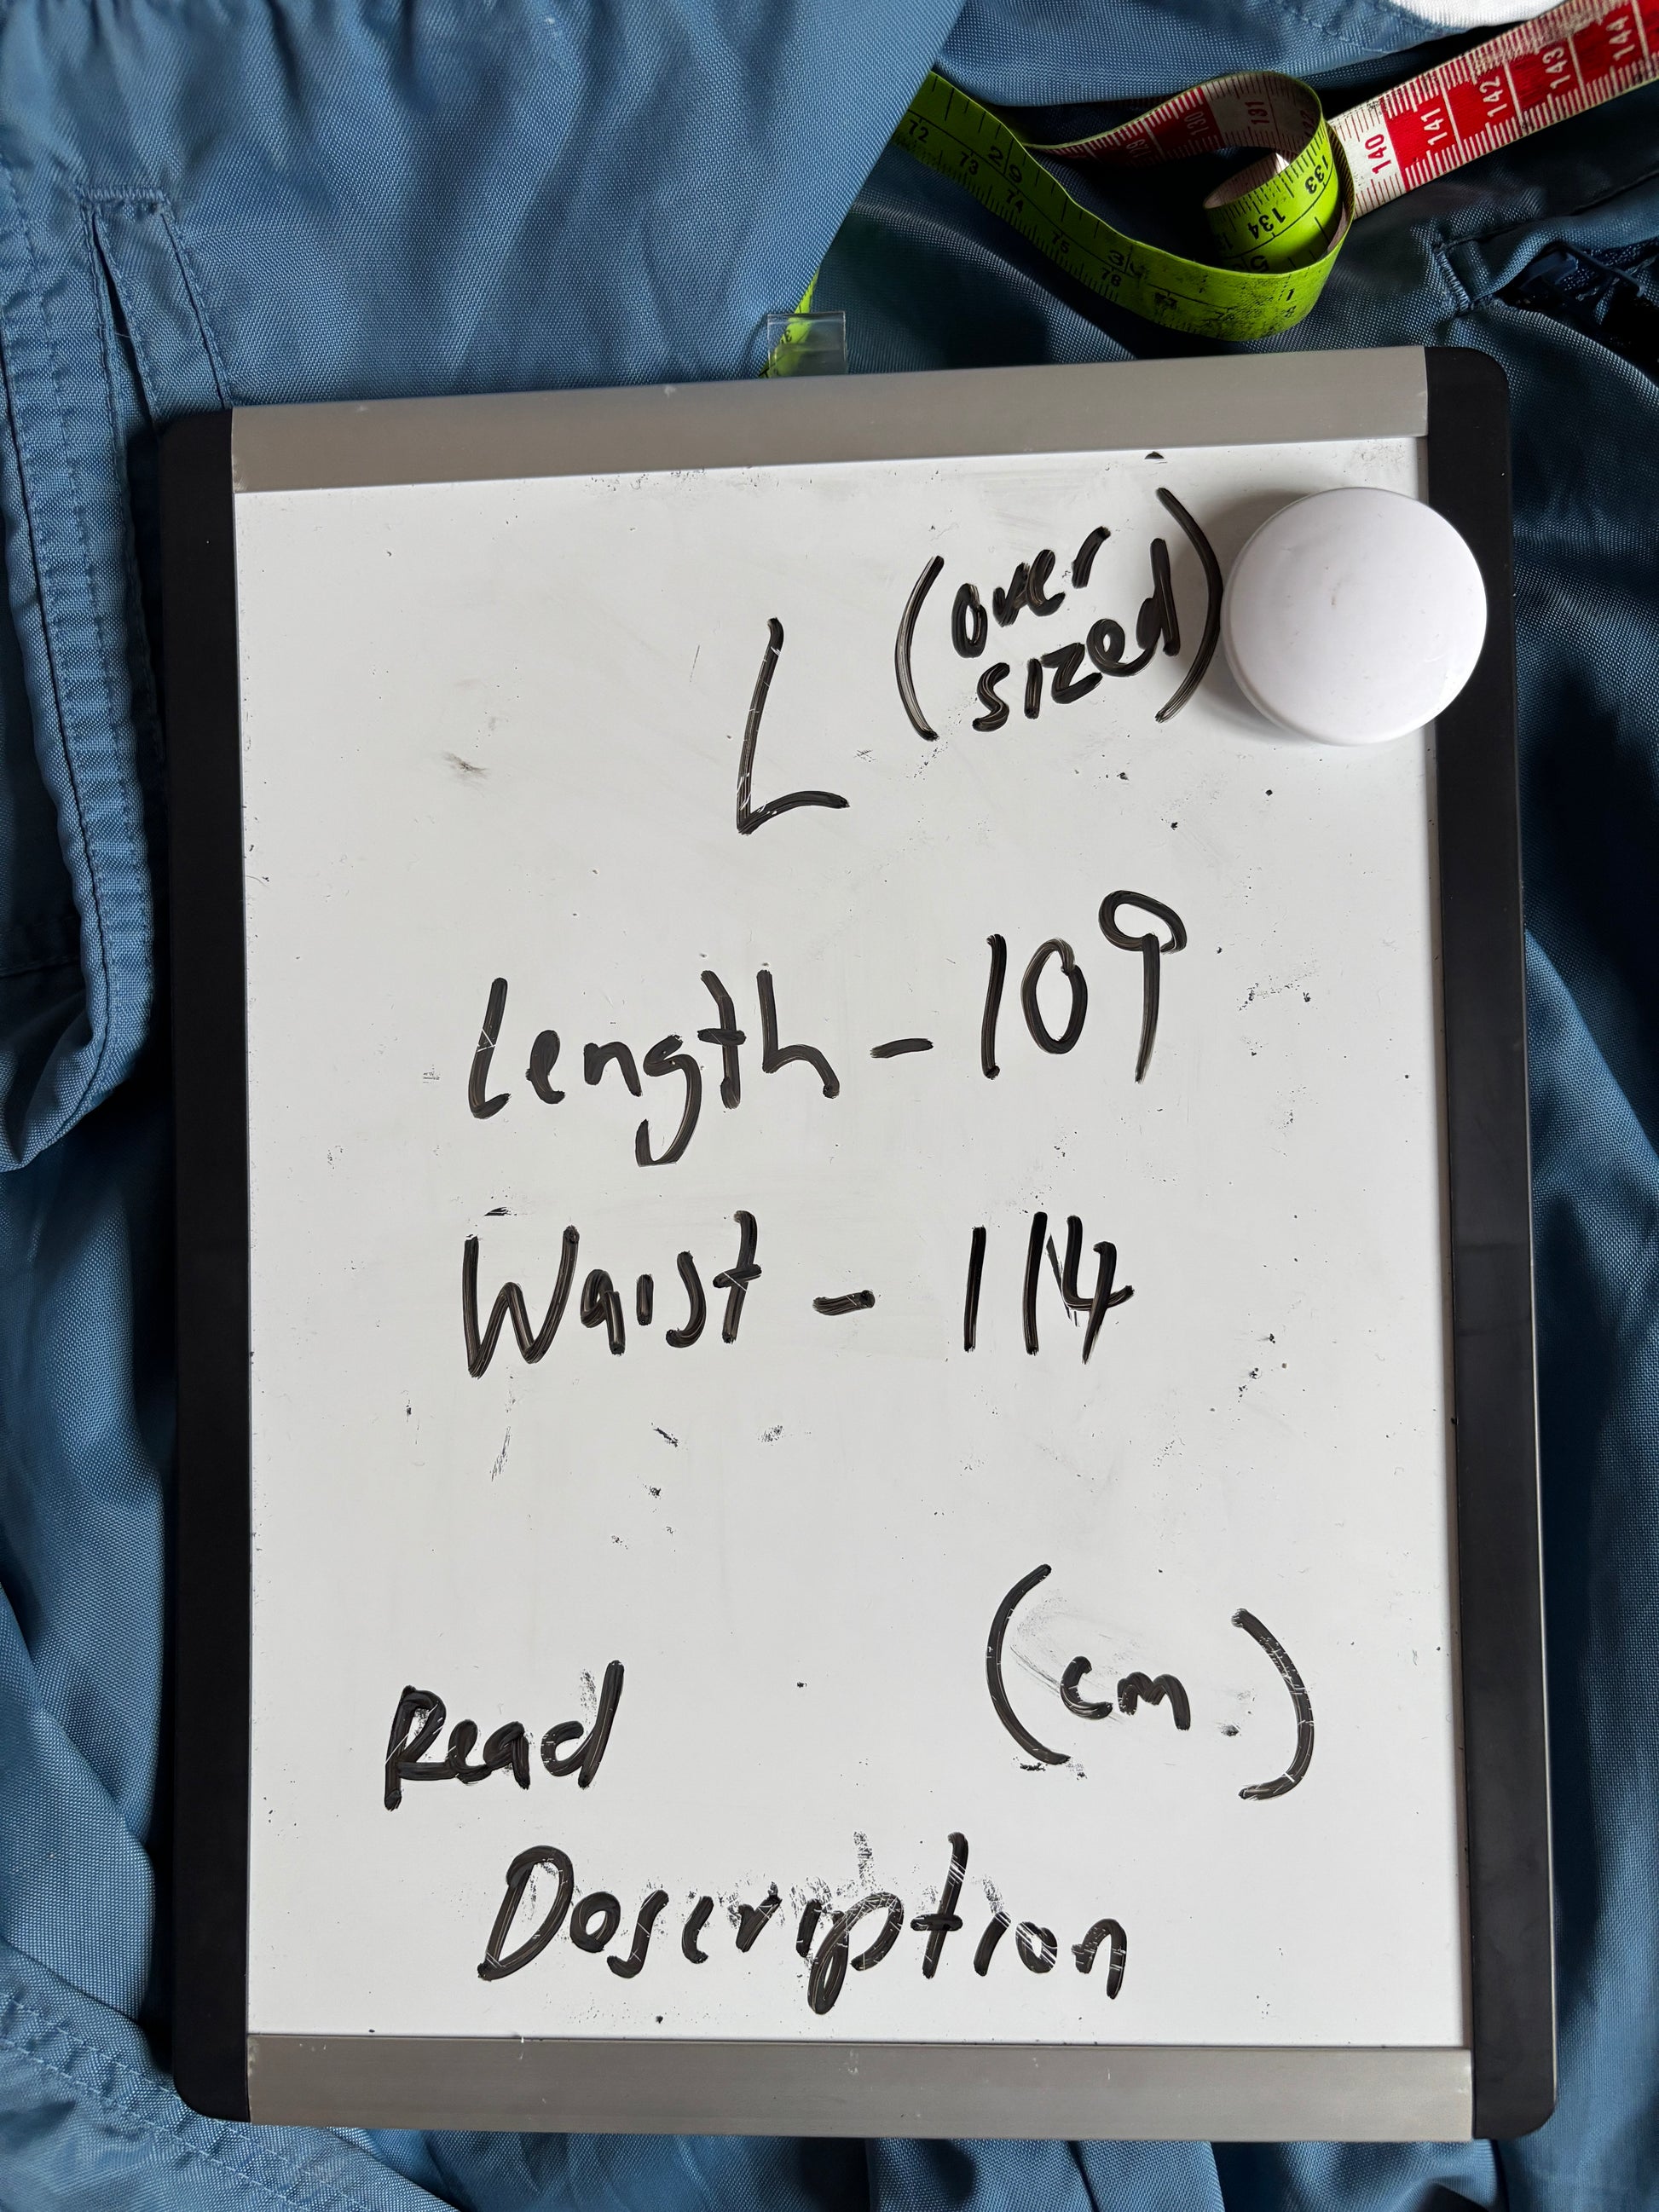 72 73 29 74 75 78
129 130 131 133 134
140 141 142 143 144
L (over sized)
Length - 109
Waist - 114
(cm)
Read
Description